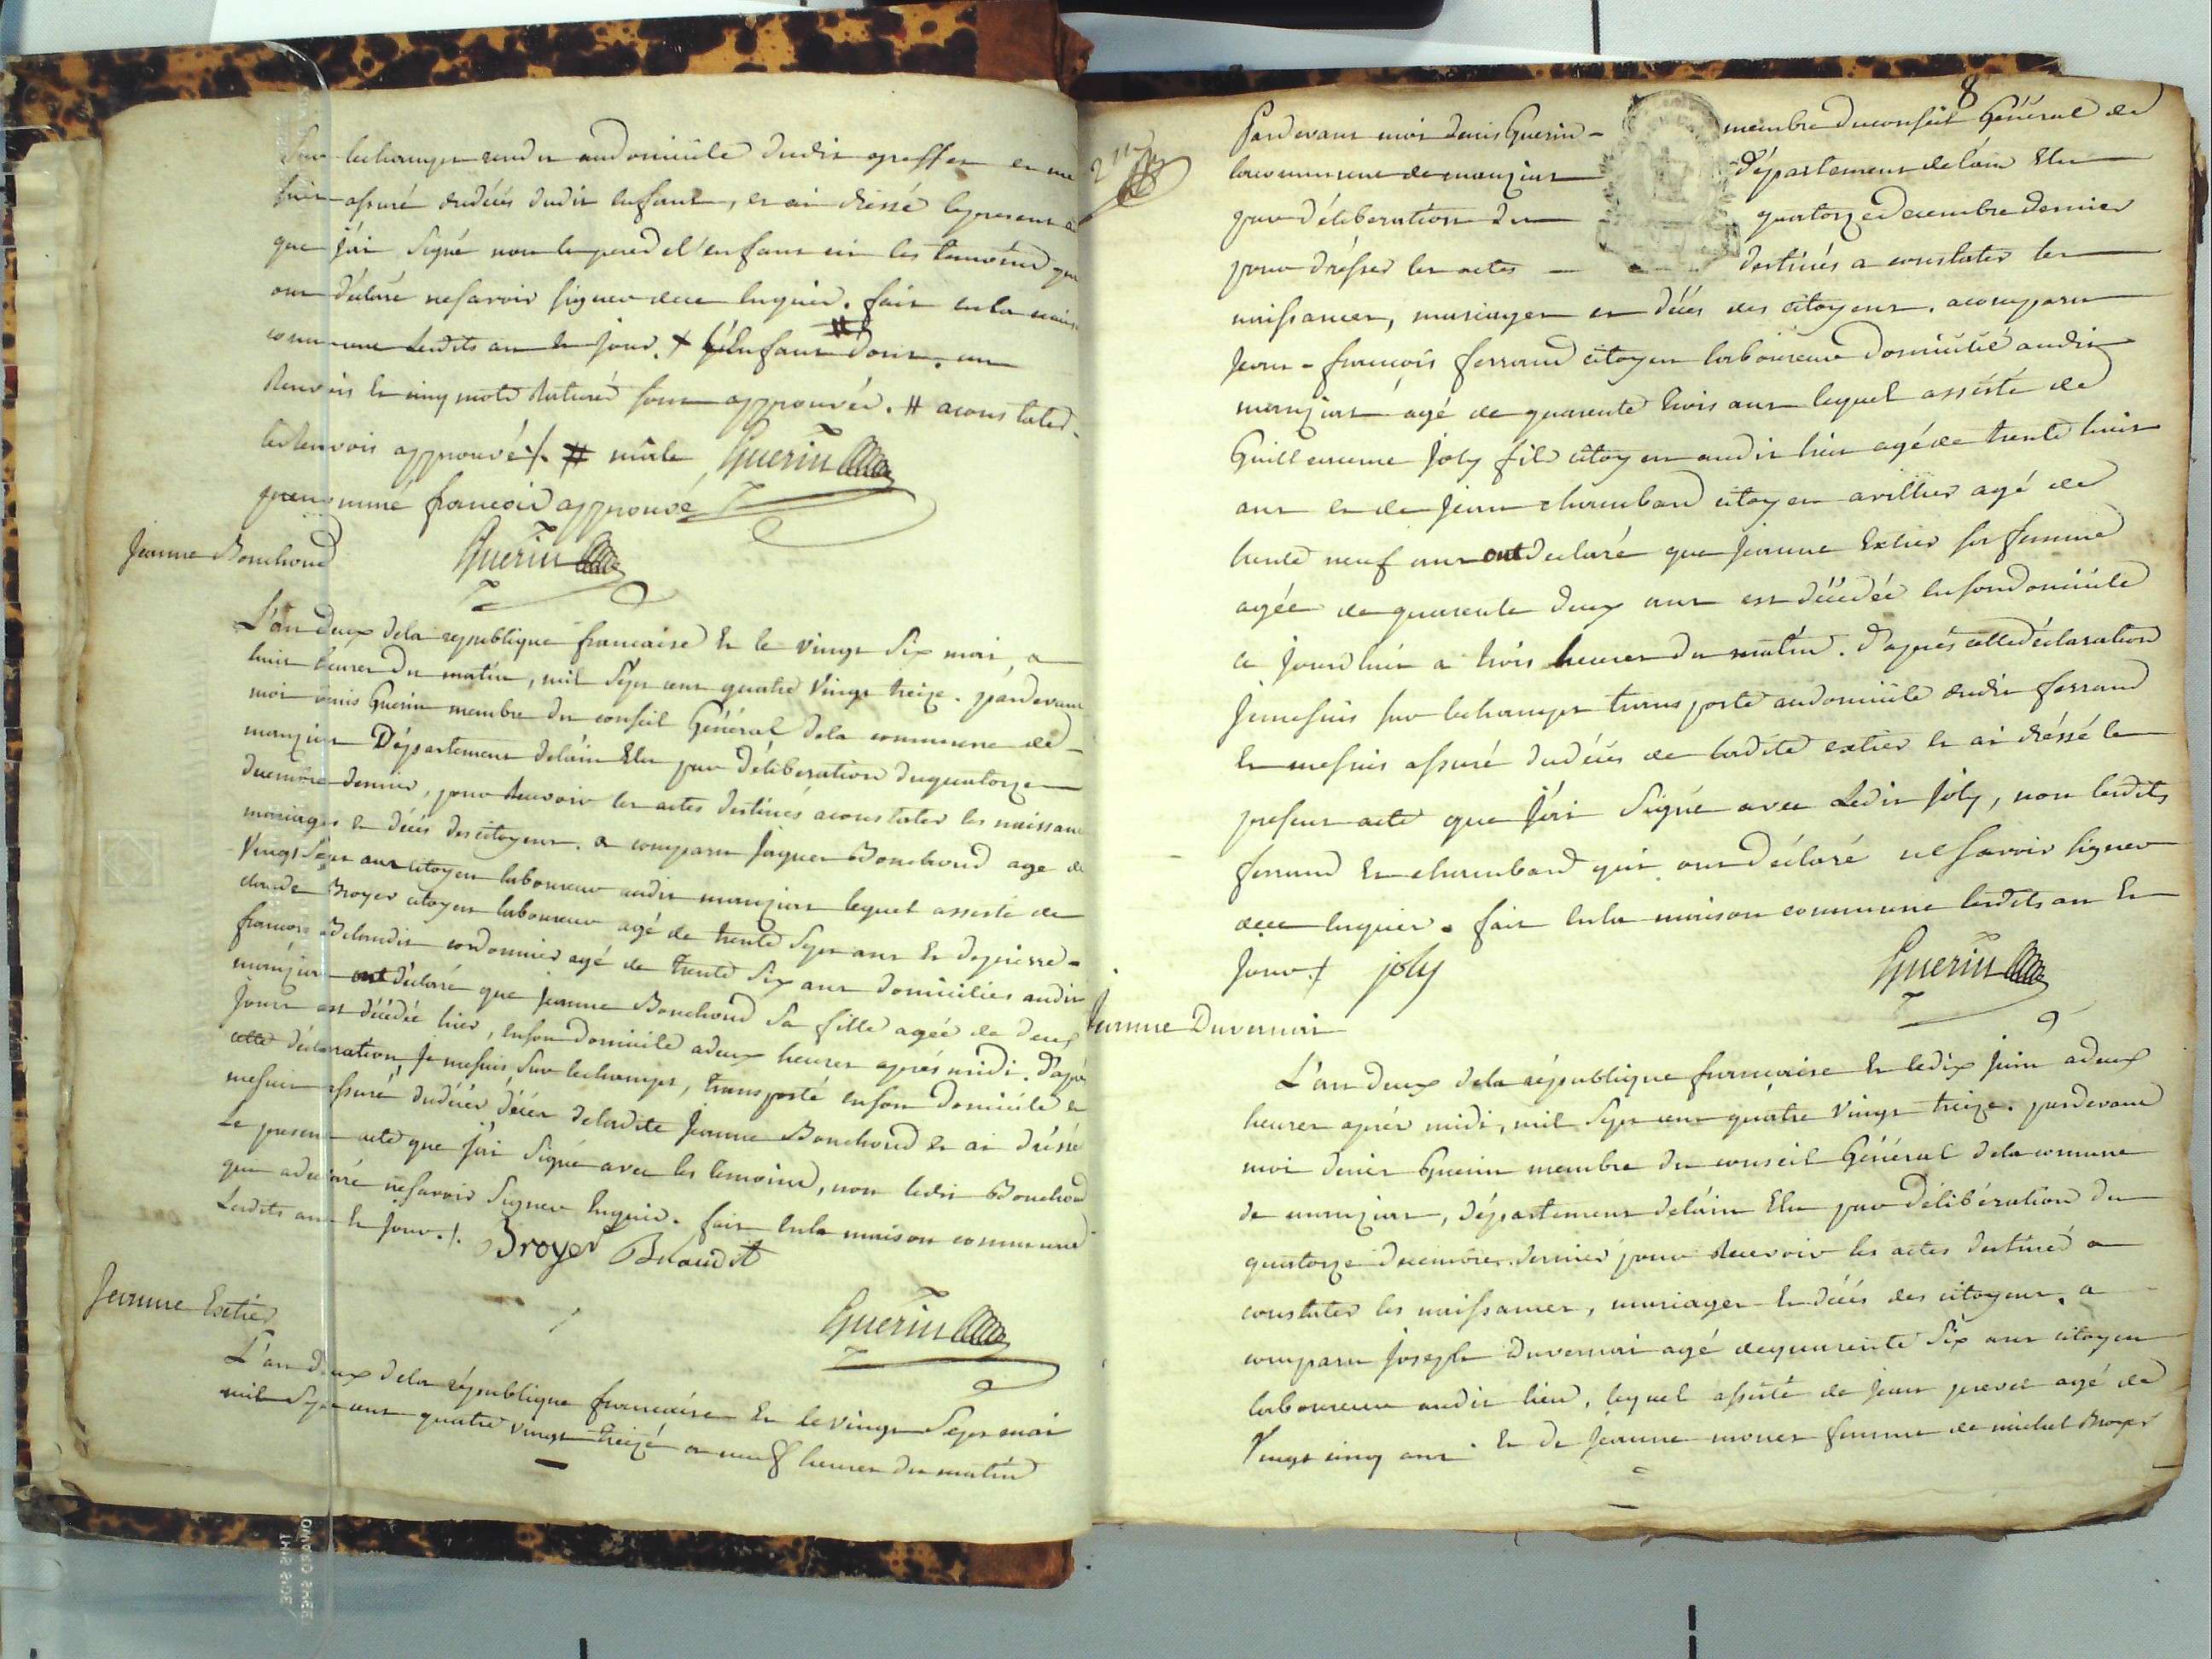 Sur lechamps rendu audomicile dudit greffier et me
suis assuré dudécés dudit enfant, et ai dressé lepresent a
que j'ai signé non le pere de l'enfant ni les temoins qui
ont déclaré nesavoir signer dece enquis. fait enla maison
commune lesdits an et jour. + #
renvois et cinq mots raturés sont approuvés. # aconstater
les renvois approuvé ./. # mille Guerin
prenommé francois approuvé
Guerin
Jeanne Bouchoud
L'an deux dela republique francaise et le vingt six mai, a
huit heures du matin, mil sept cent quatre vingt treize. pardevant
moi denis Guerin membre du conseil Général dela commune de
manziat Département delain Elu par déliberation duquatorze
decembre dernier, pour recevoir les actes destinés aconstater les naissan
mariages et décés des citoyens. a comparu Jaques Bouchoud age de
vingt sept ans citoyen laboureur audit manziat lequel assisté de
claude Broyer citoyen laboureur agé de trente sept ans et depierre
francois Belaudit cordonnier agé de trente six ans domiciliés audit
manziat ont déclaré que jeanne Bouchoud sa fille agée de deux
jours est décédée hier, enson domicile adeux heures aprés midi. D'apré
cette déclaration, je mesuis sur lechamps, transporté enson domicile et
mesuis assuré dudécés décés deladite Jeanne Bouchoud et ai dréssé
Le present acte que j'ai signé avec les temoins, non ledit Bouchoud
qui adeclaré nesavoir signer enquis. fait enla maison commune
Lesdits an et jour ./. Broyer Belaudit
Guerin
Jeanne Extier
L'an deux dela république francaise et le vingt sept mai
mil sept cent quatre vingt treize a neuf heures du matin
8
Pardevant moi denis Guerin - membre duconseil Général de
lacommune de manziat département delain Elu
par déliberation du quatorze decembre dernier
pour drésser les actes destinés a constater les
naissances, mariages et décés des citoyens. acomparu
Jean - francois ferrand citoyen laboureur domicilié audit
manziat agé de quarente trois ans lequel assisté de
Guillaume joly fils citoyen audit lieu agé de trente huit
ans et de jean chambard citoyen agé de
trente neuf ans ont declaré que jeanne Extier sa femme
agée de quarente deux ans est décédée enson domicile
ce jourd'hui a trois heures du matin. D'aprés cette déclaration
jemesuis sur lechamps transporté audomicile dudit ferrand
et mesuis assuré dudécés de ladite extier et ai dréssé le
present acte que j'ai signé avec Ledit joly, non lesdits
ferrand et chambard qui ont déclaré nesavoir signer
dece enquis. fait enla maison commune lesdits an et
jour + joly Guerin
Jeanne Duvernai
L'an deux dela république francaise et ledix juin adeux
heures aprés midi, mil sept cent quatre vingt treize. pardevant
moi denis Guerin membre du conseil Général dela comune
de manziat, département delain Elu par délibération du
quatorze decembre dernier pour recevoir les actes destinés a
constater les naissances, mariages et décés des citoyens. a
comparu joseph Duvernai agé dequarente six ans citoyen
laboureur audit lieu, lequel assisté de jean prevet agé de
vingt cinq ans. Et de jeanne monet femme de michel Broyer